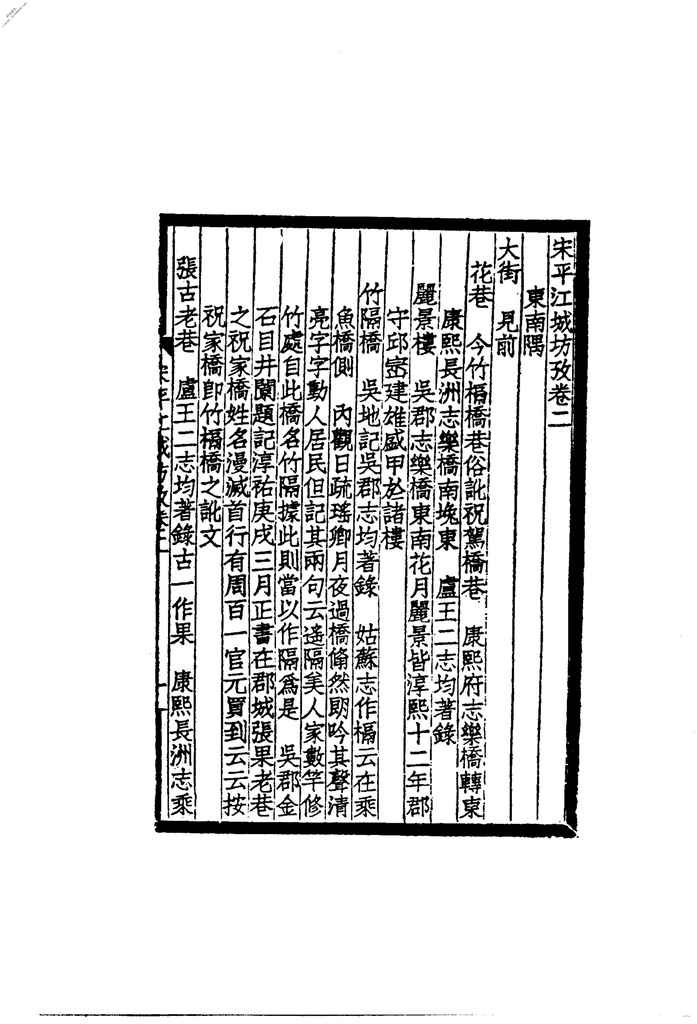 宋平江城坊攷卷二
東南隅
大街　見前
花巷　今竹槅橋巷俗訛祝駕橋巷　康熙府志樂橋轉東
康熙長洲志樂橋南堍東　盧王二志均著錄
麗景樓　吳郡志樂橋東南花月麗景皆淳熙十二年郡
守邱崈建雄盛甲於諸樓
竹隔橋　吳地記吳郡志均著錄　姑蘇志作槅云在乘
魚橋側　內觀日疏瑤卿月夜過橋翛然朗吟其聲清
亮字字動人居民但記其兩句云遙隔美人家數竿修
竹處自此橋名竹隔據此則當以作隔爲是　吳郡金
石目井闌題記淳祐庚戌三月正書在郡城張果老巷
之祝家橋姓名漫滅首行有周百一官元買到云云按
祝家橋卽竹槅橋之訛文
張古老巷　盧王二志均著錄古一作果　康熙長洲志乘
宋平江城坊攷卷二
一